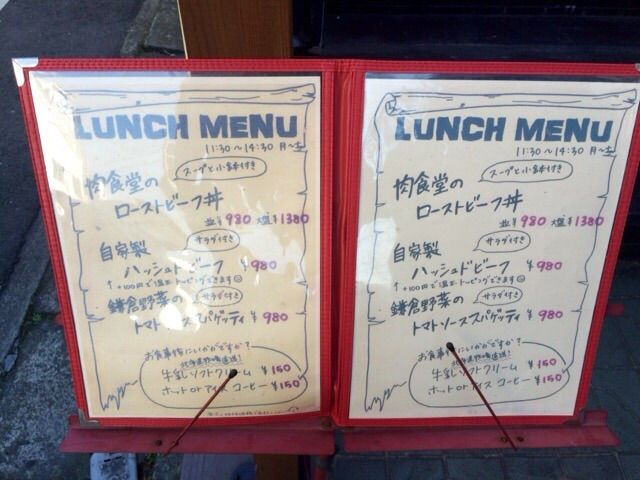 LUNCH MENU
11:30〜14:30 月〜土
スープと小鉢付き
肉食堂の
ローストビーフ丼
並¥980 大盛¥1380
サラダ付き
自家製
ハッシュドビーフ ¥980
↑+100円で温玉トッピングできます
鎌倉野菜の サラダ付き
トマトソーススパゲッティ ¥980
お食事後にいかがですか?
北海道牧場直送!
牛乳ソフトクリーム ¥150
ホット or アイス コーヒー ¥150
LUNCH MENU
11:30〜14:30 月〜土
スープと小鉢付き
肉食堂の
ローストビーフ丼
並¥980 大盛¥1380
サラダ付き
自家製
ハッシュドビーフ ¥980
↑+100円で温玉トッピングできます
鎌倉野菜の サラダ付き
トマトソーススパゲッティ ¥980
お食事後にいかがですか?
北海道牧場直送!
牛乳ソフトクリーム ¥150
ホット or アイス コーヒー ¥150